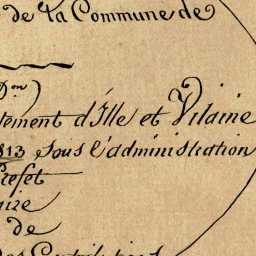 de la Commune de
on)
tement d'Ille et Vilaine
813 sous l'administration
Prefet
aire
de